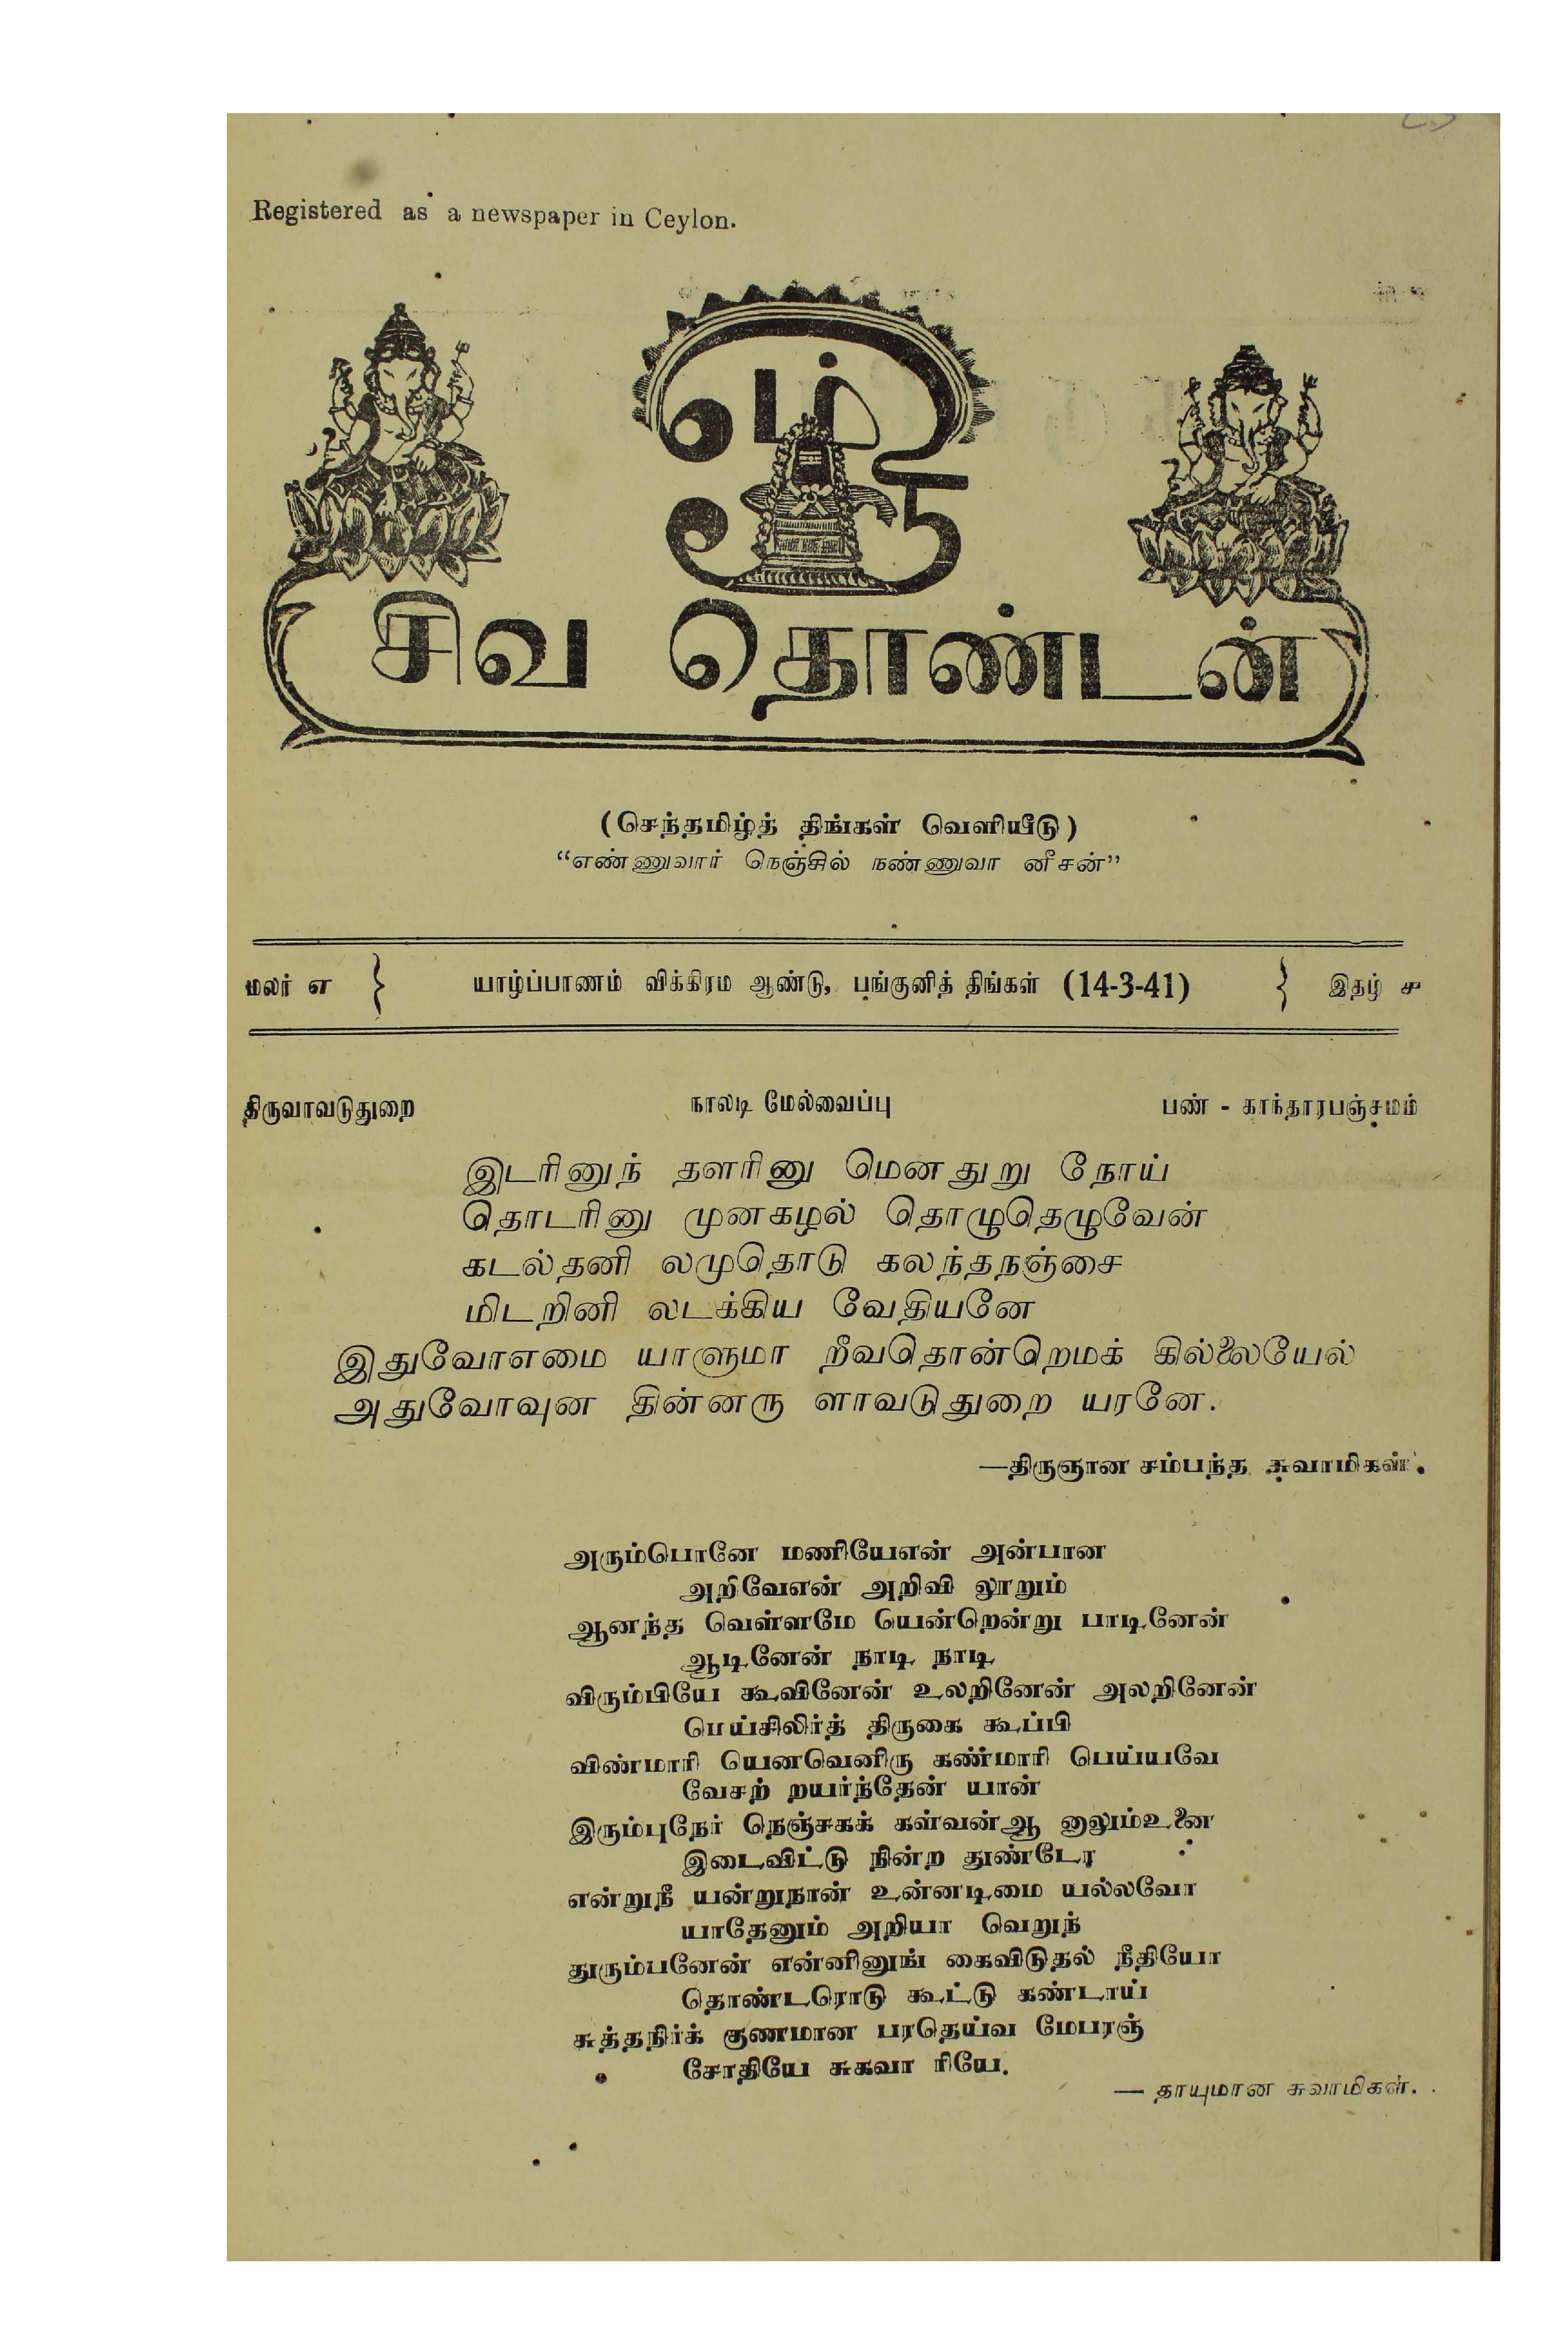 Registered as a newspaper in Ceylon.
ஓம்
சிவ தொண்டன்
(செந்தமிழ்த் திங்கள் வெளியீடு)
“எண்ணுவார் நெஞ்சில் நண்ணுவா னீசன்”
மலர் எ } யாழ்ப்பாணம் விக்கிரம ஆண்டு, பங்குனித் திங்கள் (14-3-41) } இதழ் ச
திருவாவடுதுறை நாலடி மேல்வைப்பு பண் - காந்தாரபஞ்சமம்
இடரினுந் தளரினு மெனதுறு நோய்
தொடரினு முனகழல் தொழுதெழுவேன்
கடல்தனி லமுதொடு கலந்தநஞ்சை
மிடறினி லடக்கிய வேதியனே
இதுவோஎமை யாளுமா றீவதொன்றெமக் கில்லையேல்
அதுவோவுன தின்னரு ளாவடுதுறை யரனே.
—திருஞான சம்பந்த சுவாமிகள்.
அரும்பொனே மணியேஎன் அன்பான
அறிவேஎன் அறிவி லூறும்
ஆனந்த வெள்ளமே யென்றென்று பாடினேன்
ஆடினேன் நாடி நாடி
விரும்பியே கூவினேன் உலறினேன் அலறினேன்
மெய்சிலிர்த் திருகை கூப்பி
விண்மாரி யெனவெனிரு கண்மாரி பெய்யவே
வேசற் றயர்ந்தேன் யான்
இரும்புநேர் நெஞ்சகக் கள்வன்ஆ னாலும்உனை
இடைவிட்டு நின்ற துண்டோ
என்றுநீ யன்றுநான் உன்னடிமை யல்லவோ
யாதேனும் அறியா வெறுந்
துரும்பனேன் என்னினுங் கைவிடுதல் நீதியோ
தொண்டரொடு கூட்டு கண்டாய்
சுத்தநிர்க் குணமான பரதெய்வ மேபரஞ்
சோதியே சுகவா ரியே.
— தாயுமான சுவாமிகள்.